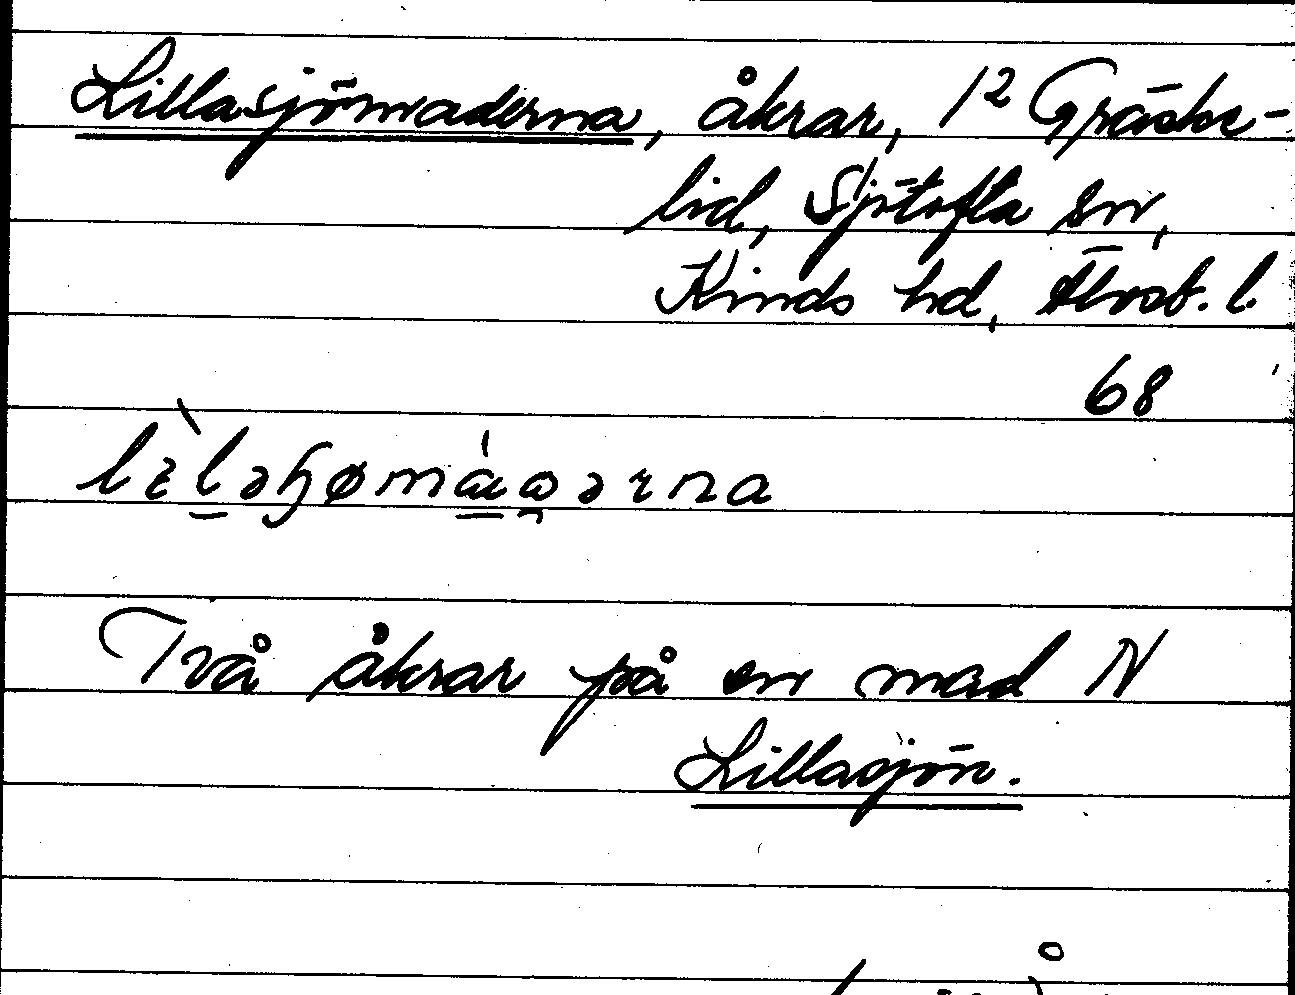 Lillasjömaderna, åkrar, 1² Gräske-
lid, Sjötofta sn,
Kinds hd, Älvsb. l.
68
Två åkrar på en mad N
Lillasjön.